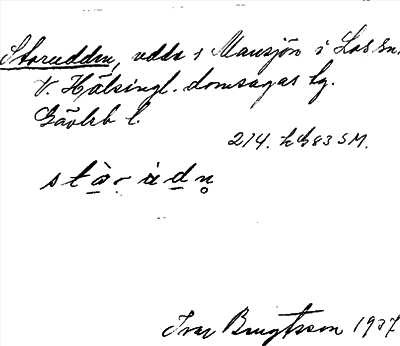 Storudden, udde i Mansjön i Los sn.
V. Hälsingl. domsagas tg.
Gävleb l.
214. h B83 SM.
stòr ùdn̥
Ivar Bengtsson 1937